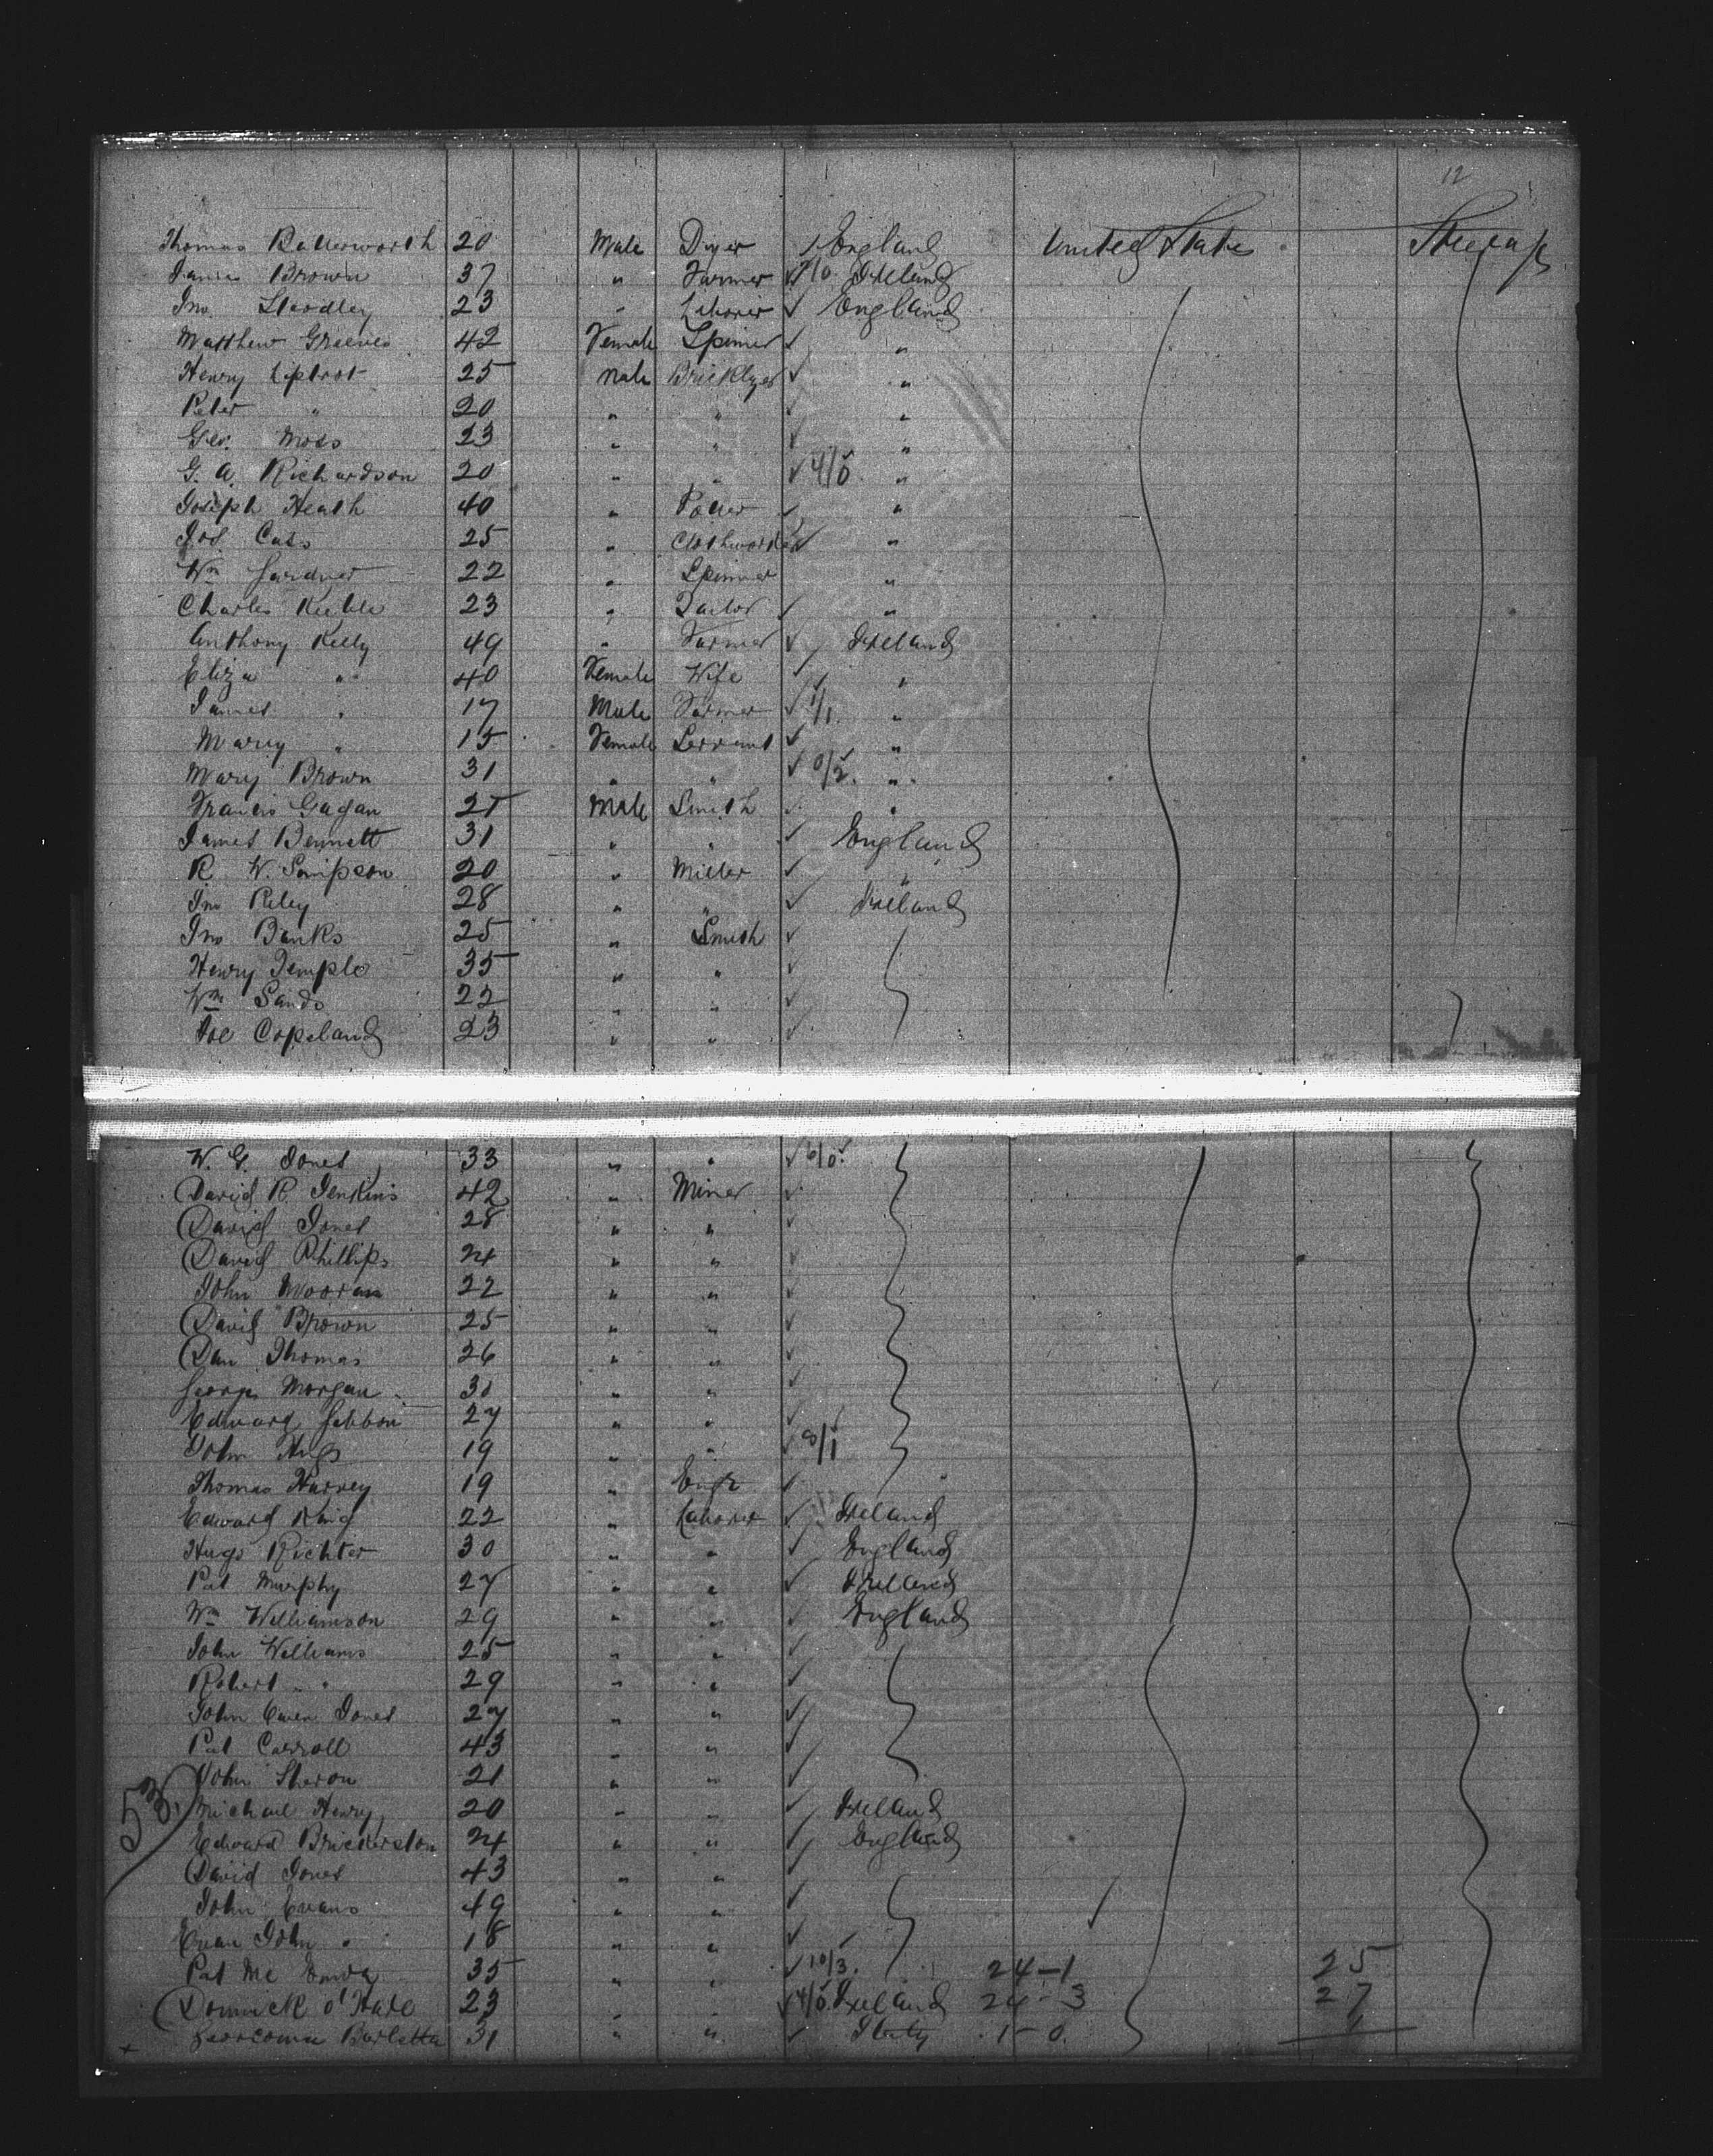 12
Thomas Butterworth 20 Male Dyer England United States Steerage
James Brown 37 " Farmer 7/0 Ireland
Jno. 23 " Laborer England
Matthew Greeves 42 Female Spinner "
Henry Liptrot 25 Male Bricklyer "
Peter " 20 " " "
Geo. Moss 23 " " "
G. A. Richardson 20 " " 4/0 "
Joseph Heath 40 " Potter "
Jos. Cass 25 " Clothworker "
Wm Gardner 22 " Spinner "
Charles Keeble 23 " Tailor "
Anthony Kelly 49 " Farmer Ireland
Eliza " 40 Female Wife "
James " 17 Male Farmer 1/1. "
Mary " 15 Female Servant "
Mary Brown 31 " " 0/2. "
Francis Gagan 25 Male Smith "
James Bennett 31 " " England
R. W. Simpson 20 " Miller "
Jno Riley 28 " " Ireland
Jno Banks 25 " Smith
Henry Temple 35 " "
Wm Sands 22 " "
Joe Copeland 23 " "
W. G. Jones 33 " " 6/0.
David R. Jenkins 42 " Miner
David Jones 28 " "
David Phillips 24 " "
John 22 " "
David Brown 25 " "
Dan Thomas 26 " "
George Morgan 30 " "
Edward Gibbon 27 " "
John 19 " " 8/1
Thomas Harvey 19 " Engr
Edward King 22 " Laborer Ireland
Hugo Richter 30 " " England
Pat Murphy 27 " " Ireland
Wm Williamson 29 " " England
John Williams 25 " "
Robert " 29 " "
John Owen Jones 27 " "
Pat Carroll 43 " "
John Sheron 21 " "
53. Michael Henry 20 " " Ireland
Edward Brickerston 24 " " England
David Jones 43 " "
John Evans 49 " "
Evan John " 18 " "
Pat Mc 35 " " 10/3. 24-1 25
Domnick O'Hare 23 " " 4/0. Ireland 24-3 27
Barletta 31 " " Italy 1-0. 1